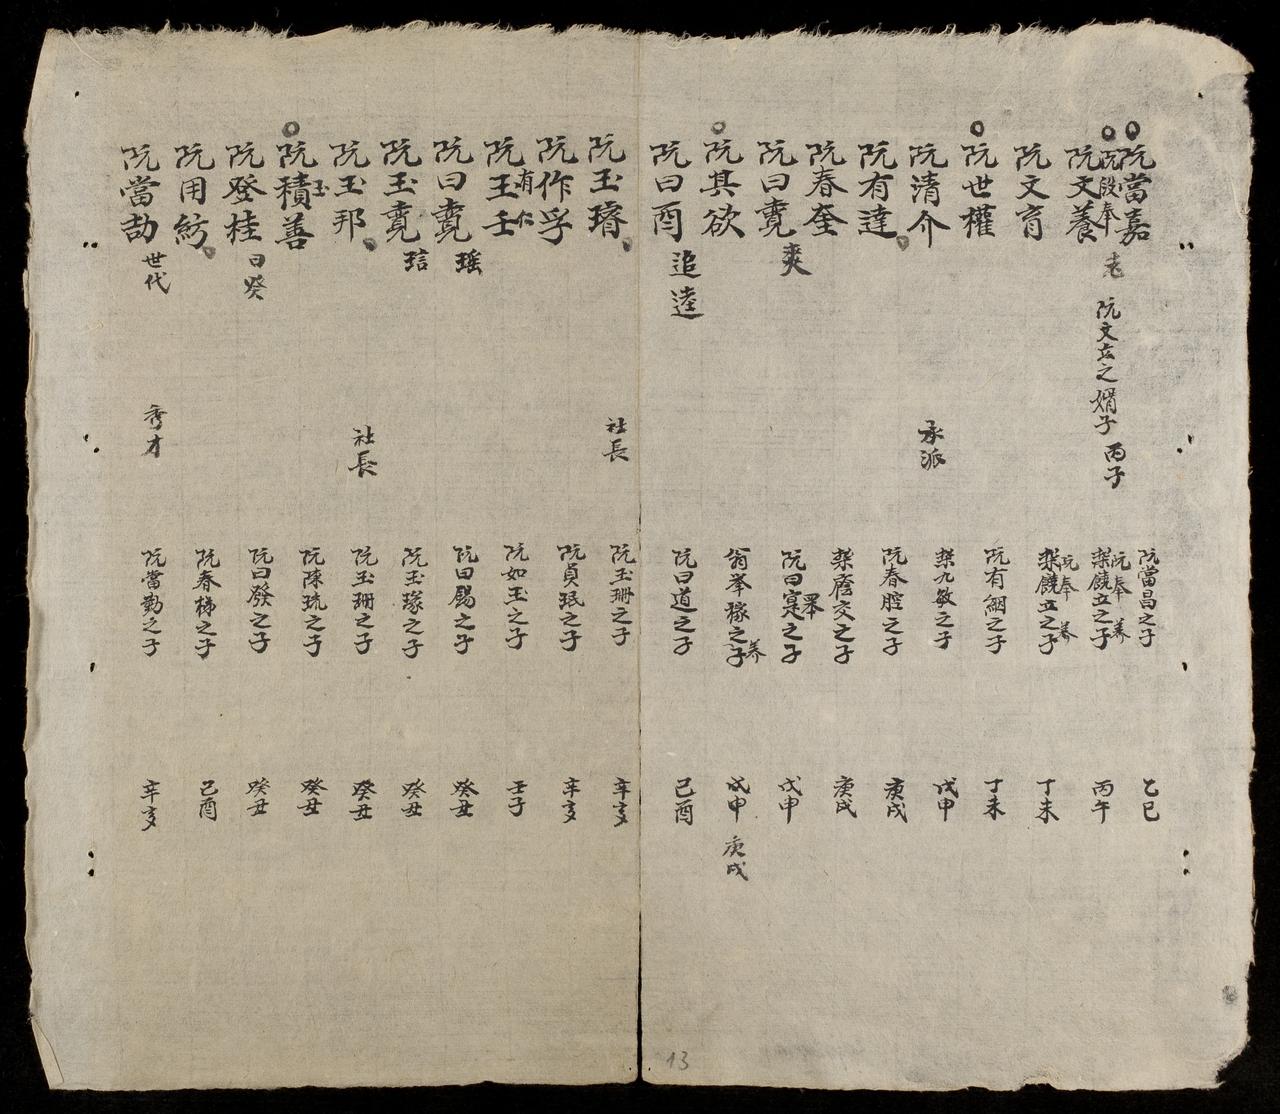 阮當嘉 阮當昌之子 乙巳
阮殷奉 老 阮文立之婿子 丙子 阮奉 養
阮文養 立之子 丙午
阮文育 立之子 阮奉 養 丁未
阮世權 阮有絪之子 丁未
阮清介 承派 九敏之子 戊申
阮有達 阮春腔之子 庚戌
阮春奎 交之子 庚戌
阮曰 爽 阮曰寔之子 戊申
阮其欲 翁举稼之子 養 戊申 庚戌
阮曰酉 追逵 阮曰道之子 己酉
阮玉璿 社長 阮玉珊之子 辛亥
阮作孚 阮貞珉之子 辛亥
阮玉壬 有仁 阮如玉之子 壬子
阮曰 瑶 阮曰賜之子 癸丑
阮玉 琂 阮玉瑑之子 癸丑
阮玉邦 社長 阮玉珊之子 癸丑
阮積善 玉 阮陳琉之子 癸丑
阮登桂 曰癸 阮曰發之子 癸丑
阮用紡 阮春梯之子 己酉
阮當劼 世代 秀才 阮當勤之子 辛亥
13